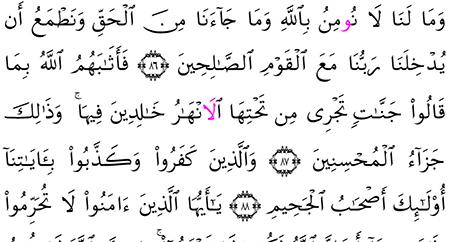 وَمَا لَنَا لَا نُومِنُ بِٱللَّهِ وَمَا جَآءَنَا مِنَ ٱلْحَقِّ وَنَطْمَعُ أَن
يُدْخِلَنَا رَبُّنَا مَعَ ٱلْقَوْمِ ٱلصَّٰلِحِينَ ٨٦ فَأَثَٰبَهُمُ ٱللَّهُ بِمَا
قَالُوا۟ جَنَّٰتٍ تَجْرِى مِن تَحْتِهَا ٱلَانْهَٰرُ خَٰلِدِينَ فِيهَا ۚ وَذَٰلِكَ
جَزَآءُ ٱلْمُحْسِنِينَ ٨٧ وَٱلَّذِينَ كَفَرُوا۟ وَكَذَّبُوا۟ بِـَٔايَٰتِنَآ
أُو۟لَٰٓئِكَ أَصْحَٰبُ ٱلْجَحِيمِ ٨٨ يَٰٓأَيُّهَا ٱلَّذِينَ ءَامَنُوا۟ لَا تُحَرِّمُوا۟